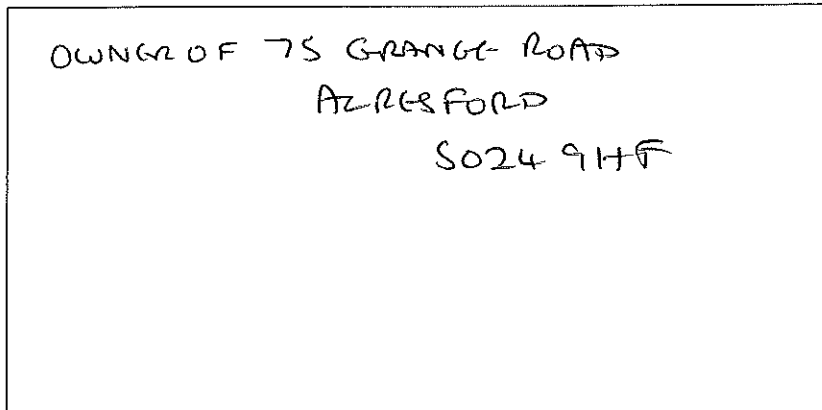 OWNER OF 75 GRANGE ROAD
ALRESFORD
SO24 9HF